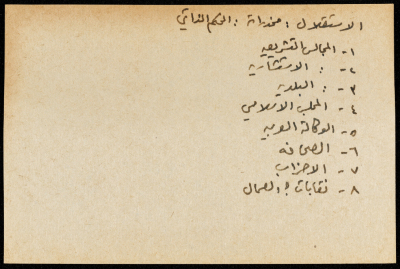 الاستقلال : مخدراته : الحكم الذاتي
١- المجالس التشريعيه
٢- : الاستشارية
٣- : البلدية
٤- المجلس الاسلامي
٥- الوكالة العربيه
٦- الصحافه
٧- الاحزاب
٨- نقابات العمال